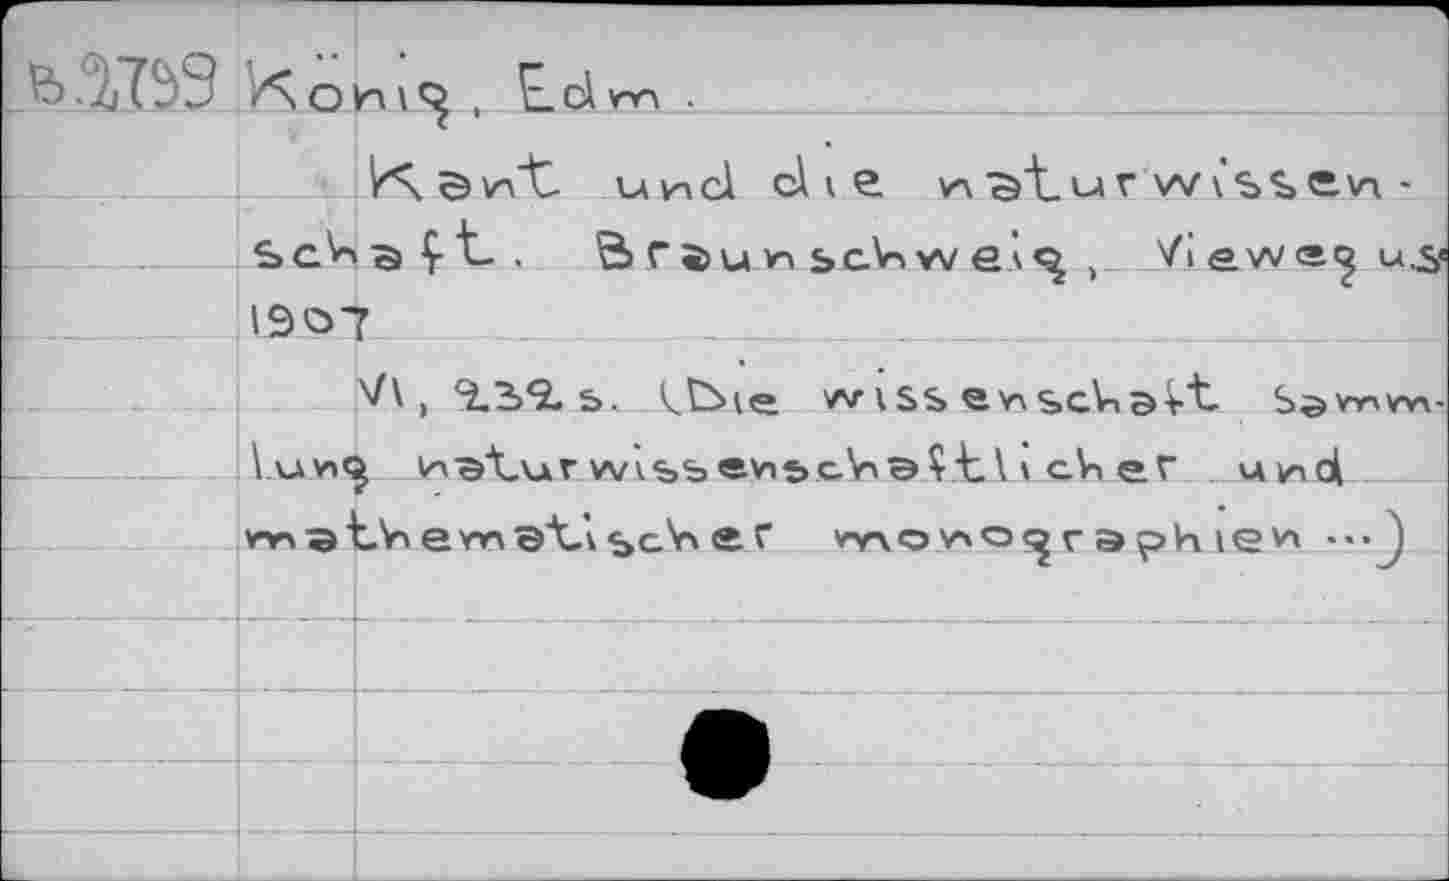 B.2739 König, Edm.
Kant und die naturwissen-
schaft. Braunschweig, Vieweg u.s
1907
VI, 232 s. (Die wissenschaft Samm-
lung naturwissenschaftlicher und
mathematischer monographien ...)